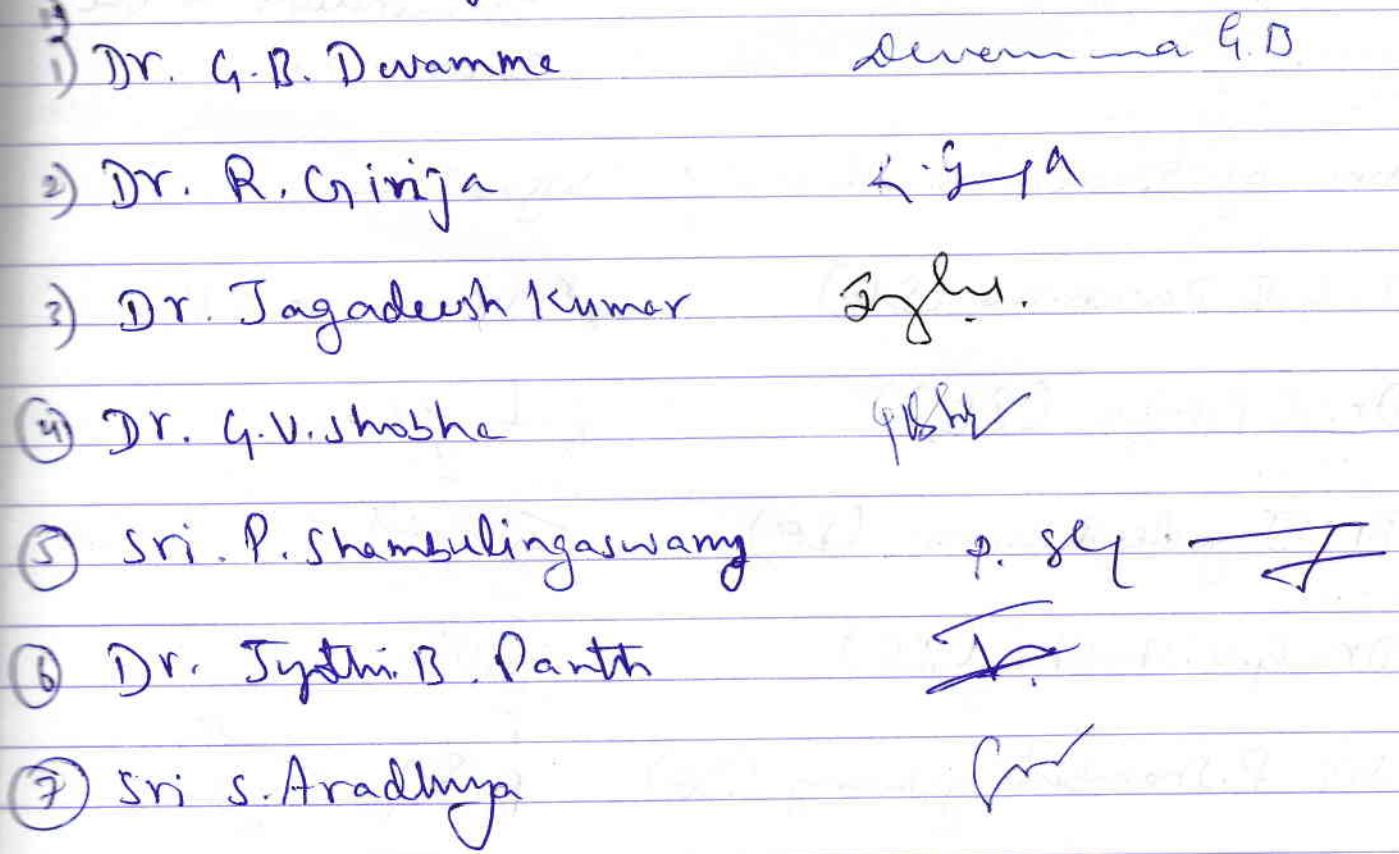 1) Dr. G.B. Devamma Devamma G.B
2) Dr. R. Girija R. Girija
3) Dr. Jagadeesh Kumar
4) Dr. G.V. Shobha
5) Sri. P. Shambulingaswamy P.
6) Dr. Jyothi. B. Panth
7) Sri S. Aradhya